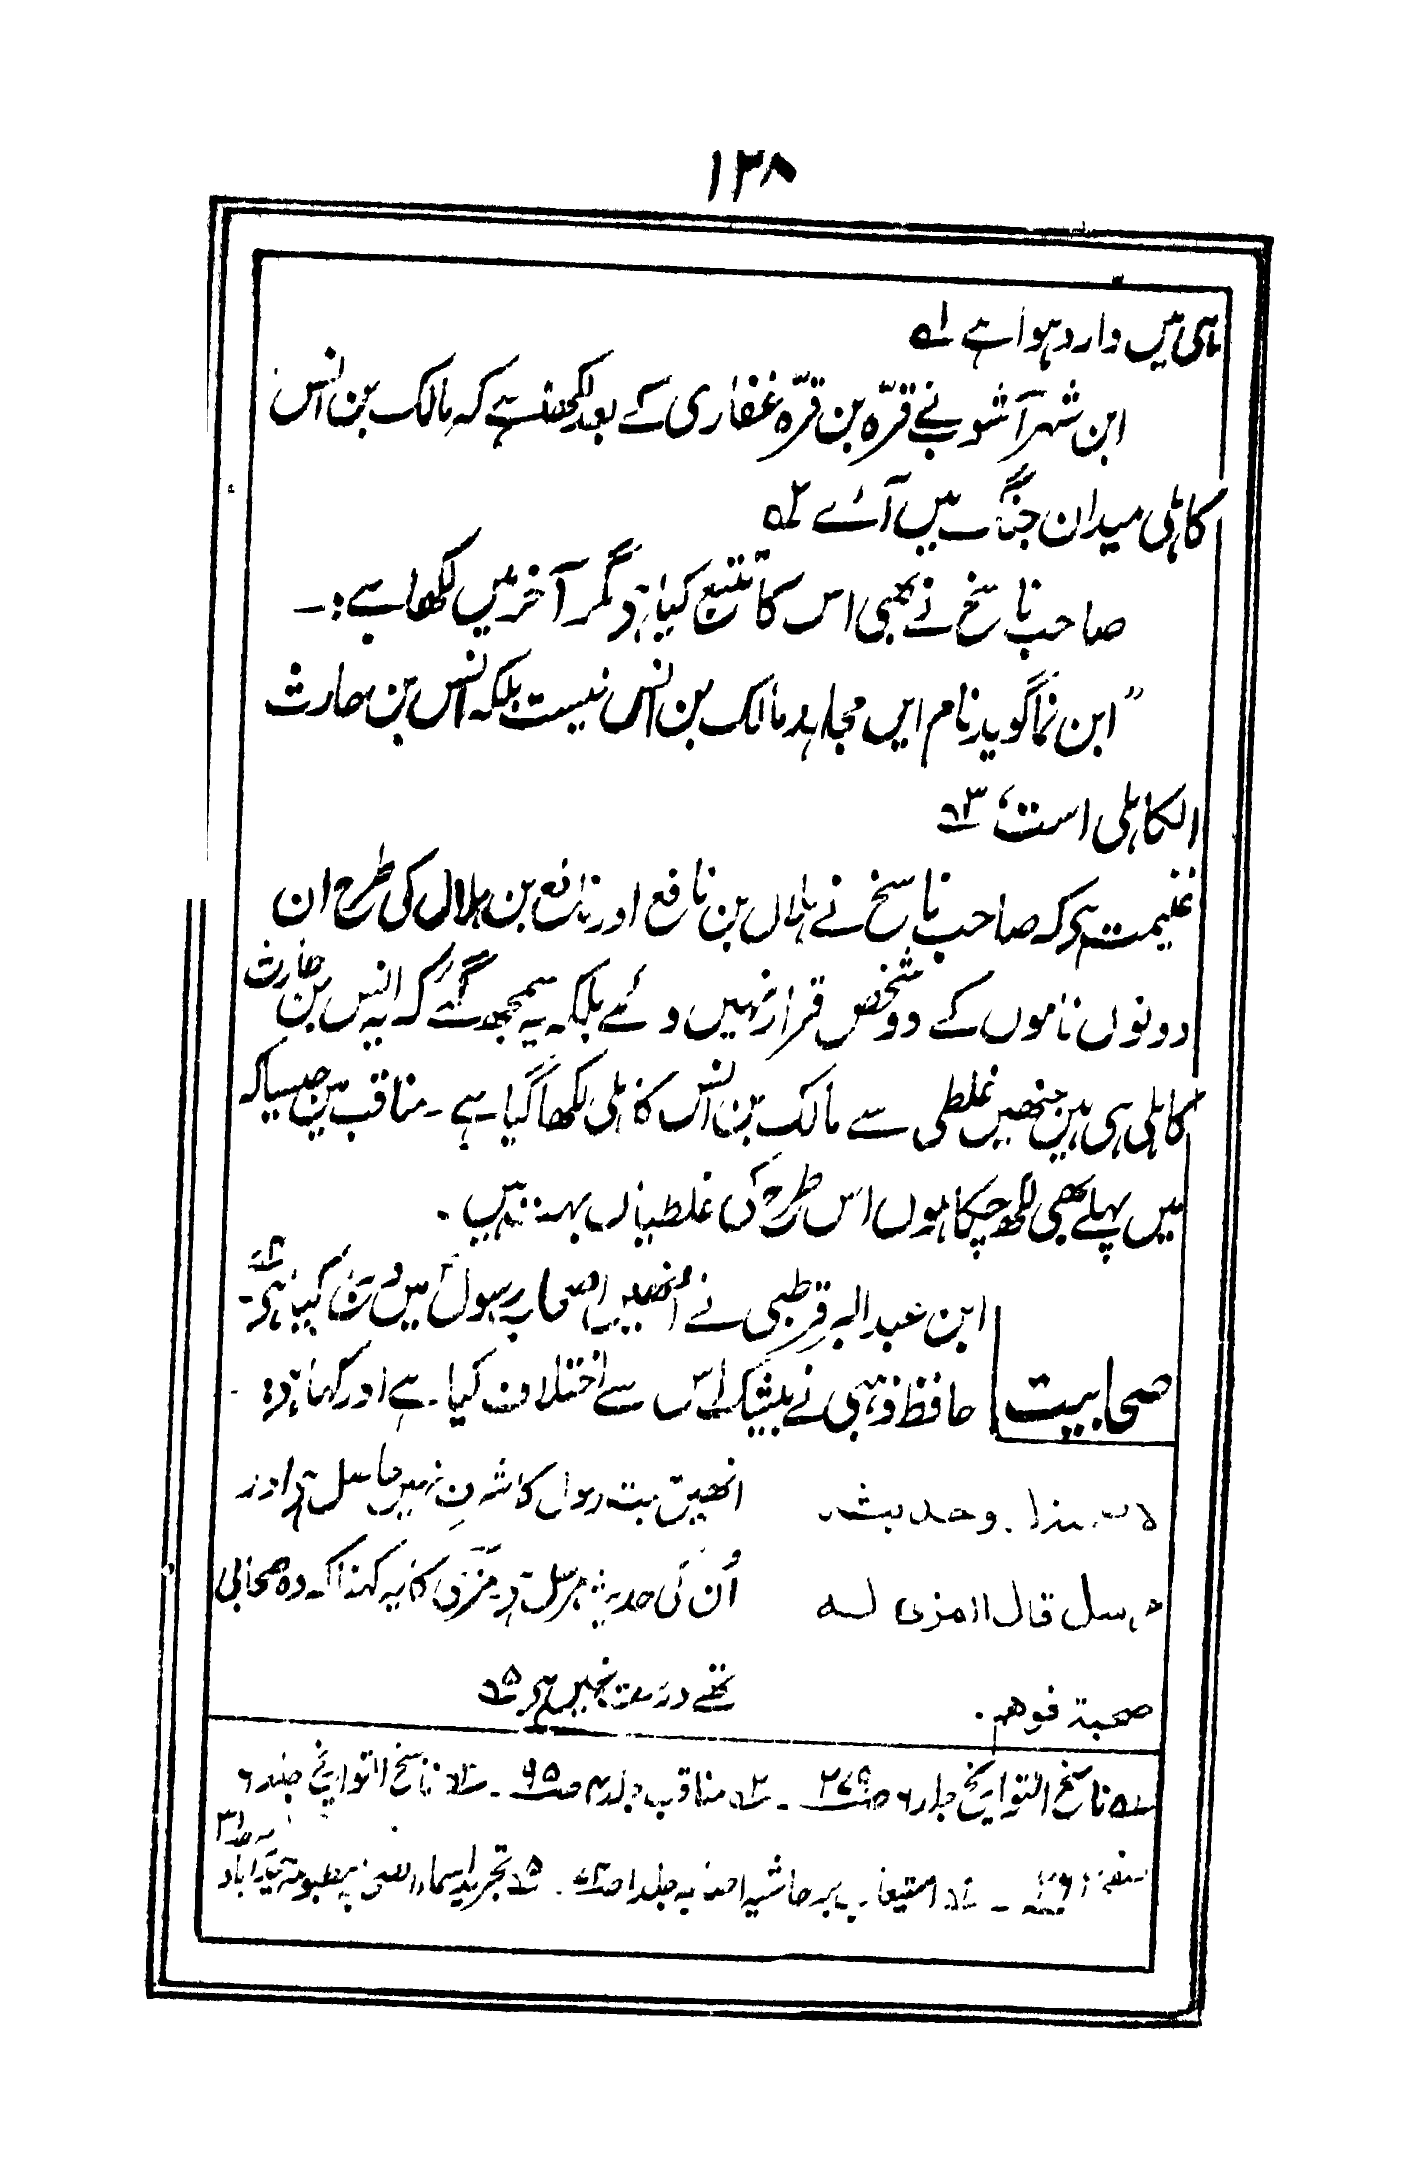 ۱۳۸
ہی میں وارد ہوا ہے ۱ہ
ابن شہر آشوب نے قرّہ بن قرّہ غفاری کے بعد لکھا ہے کہ مالک بن انس
کاہلی میدان جنگ میں آئے ۲ہ
صاحب ناسخ نے بھی اس کا تتبع کیا ہے مگر آخر میں لکھا ہے:۔
"ابن نما گوید نام ایں مجاہد مالک بن انس نیست بلکہ انس بن حارث
الکاہلی است" ۳ہ
غنیمت ہے کہ صاحب ناسخ نے ہلال بن نافع اور نافع بن ہلال کی طرح ان
دونوں ناموں کے دو شخص قرار نہیں دئے بلکہ یہ سمجھ گئے کہ یہ انس بن حارث
کاہلی ہی ہیں جنھیں غلطی سے مالک بن انس کاہلی لکھا گیا ہے۔ مناقب میں جیسا کہ
میں پہلے بھی لکھ چکا ہوں اس طرح کی غلطیاں بہت ہیں۔
صحابیت
ابن عبدالبر قرطبی نے انھیں اصحاب رسول میں درج کیا ہے۔ ۴ہ
حافظ ذہبی نے بیشک اس سے اختلاف کیا ہے اور کہا ہے:
لا وحدیثہ
انھیں رسول کا شرف نہیں حاصل ہے اور
مرسل قال المزی لہ
اُن کی حدیث مرسل ہے۔ مزّی کا یہ کہنا کہ وہ صحابی
صحبۃ فوھم.
تھے درست نہیں ہے ۵ہ
۱ہ ناسخ التواریخ جلد ۶ صـ۲۶۹ ۔ ۲ہ مناقب جلد ۴ صـ۹۵ ۔ ۳ہ ناسخ التواریخ جلد ۶
صفحہ ۔ ۴ہ استیعاب بر حاشیہ اصابہ جلد ۱ ۔ ۵ہ تجرید اسماء الصحابہ مطبوعہ حیدرآباد صـ۳۱